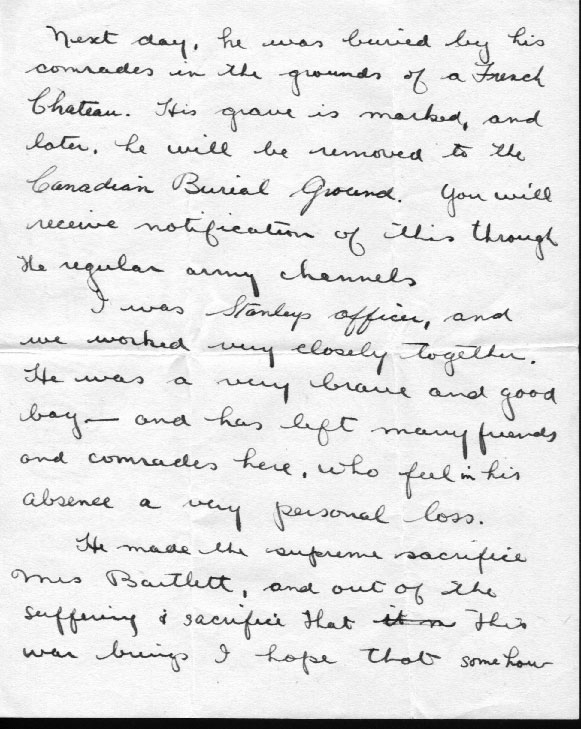 Next day, he was buried by his
comrades in the grounds of a French
Chateau. His grave is marked, and
later, he will be removed to the
Canadian Burial Ground. You will
receive notification of this through
the regular army channels
I was Stanleys officer, and
we worked very closely together.
He was a very brave and good
boy — and has left many friends
and comrades here, who feel in his
absence a very personal loss.
He made the supreme sacrifice
Mrs Bartlett, and out of the
suffering & sacrifice that this
war brings I hope that somehow